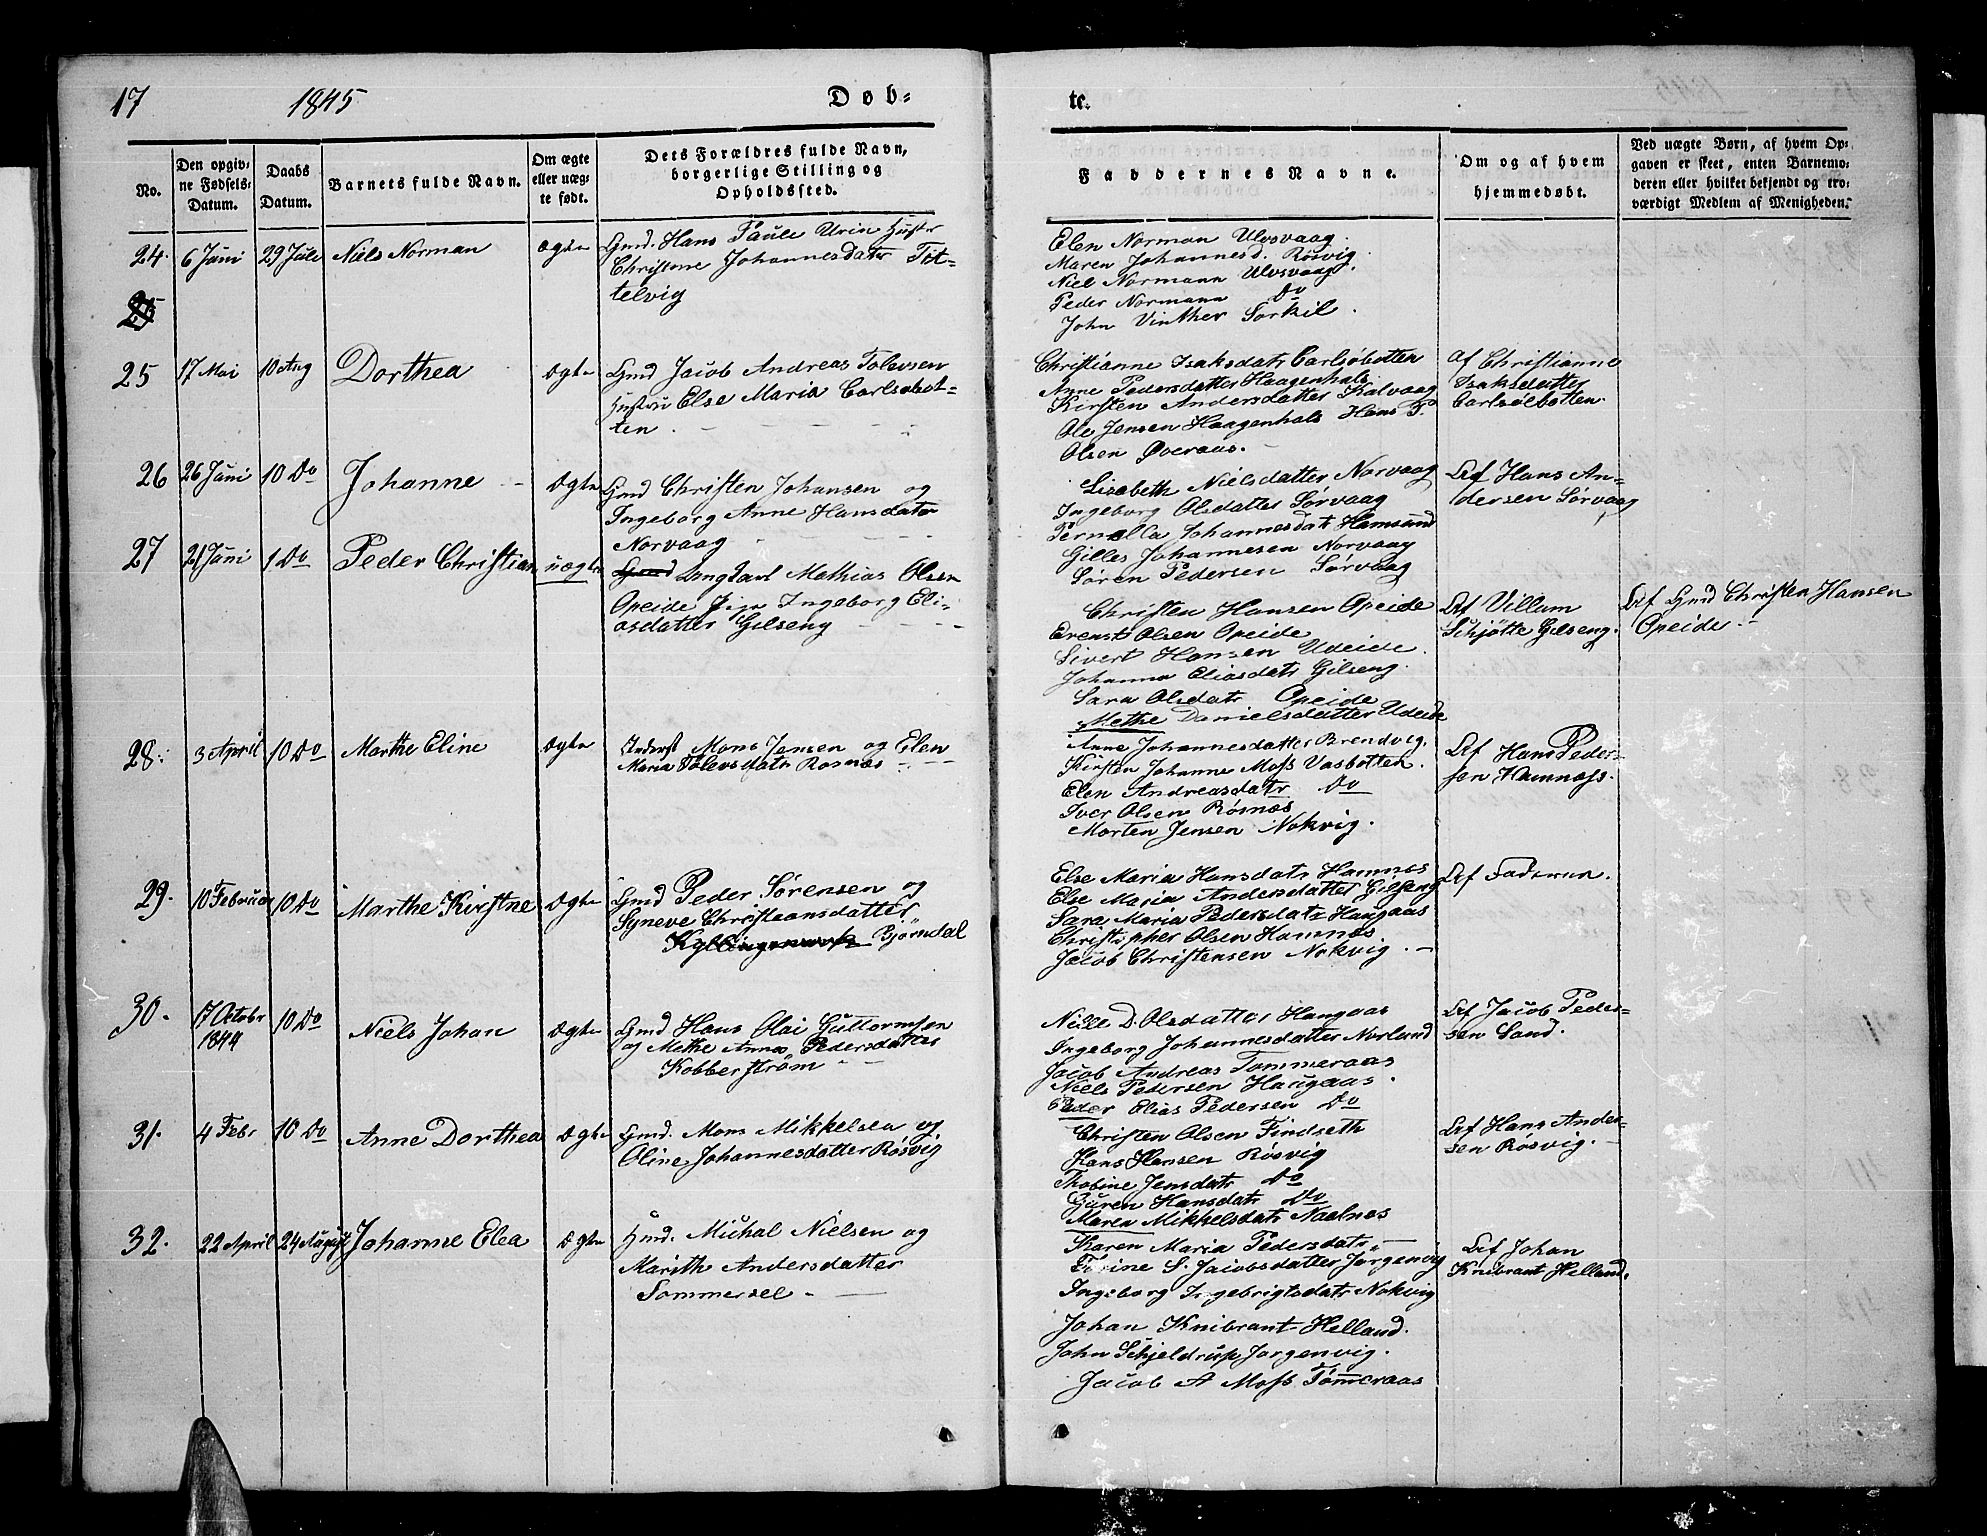 17 1845 Døb-
te.
No.
Den opgiv-
ne Fødsels-
Datum.
Daabs
Datum.
Barnets fulde Navn.
Om ægte
eller uæg-
te født.
Dets Forældres fulde Navn,
borgerlige Stilling og
Opholdssted.
Faddernes Navne.
Om og af hvem
hjemmedøbt.
Ved uægte Børn, af hvem Op-
gaven er skeet, enten Barnemo-
deren eller hvilket bekjendt og tro-
værdigt Medlem af Menigheden.
24. 6 Juni 29 Juli Niels Norman ægte
Gmd. Hans Paule Urin Hustr
Christine Johannesdater Tit-
telvig
Elen Norman Ulvsvaag.
Maren Johannesd. Røsvig
Niel Normann Ulvsvaag.
Peder Normann Do
John Vinther Sorkil.
25
25 17 Mai 10 Aug Dorthea ægte
Gmd Jacob Andreas Tolevsen
Hustru Else Maria Carlsøbot-
ten.
Christianne Isaksdatr Carlsøbotten
Anne Pedersdatter Haagenhals
Kirsten Andersdatter Kalvaag
Ole Jensen Haagenhals Hans P.
Olsen Øveraas.
Af Christianne
Isaksdatter
Carlsølbotten.
26 26 Juni 10 Do Johanne Ægte
Gmd Christen Johansen og
Ingeborg Anne Hansdater
Norvaag
Lisebeth Nielsdatter Norvaag
Ingeborg Olsdatter Sørvaag
Pernella Johannesdatr Hamsund
Gilles Johannesen Norvaag
Søren Pedersen Sørvaag
Af Hans An-
dersen Sørvaag
27 21 Juni 1 Do Peder Christian uægte
Gmd Ungkarl Mathias Olsen
Opeide Pige Ingeborg Eli-
asdatter Gilseng
Christen Hansen Opeide
Erenst Olsen Opeide
Sivert Hansen Udeide.
Johanna Eliasdatr Gilseng.
Sara Olsdatr Opeide
Methe Danielsdatter Udeide
Af Villum
Schjøtte Gilseng.
Af Gmd Christen Hansen
Opeide
28. 3 April 10 Do Marthe Eline Ægte
Inderst Mons Jensen og Elen
Maria Tolevsdatr Rosnæs
Anne Johannesdatter Brendvig.
Kirsten Johanne Moss Vasbotten.
Elen Andreasdatr Do
Iver Olsen Røsnæs
Morten Jensen Nokvig.
Af Hans Peder-
sen Hamnæss.
29. 10 Februar 10 Do Marthe Kirstne Ægte
Gmd Peder Sørensen og
Synneve Christiansdatter
Bjørndal
Else Maria Hansdatr Hamnæs
Else Maria Andersdatter Gilseng
Sara Maria Pedersdatr Haugaas
Christopher Olsen Hamnæs
Jacob Christensen Nokvig.
Af Faderen.
30. 17 Octobr
1844
10 Do Niels Johan Ægte
Gmd Hans Olai Guttormsen
og Methe Anna Pedersdatter
Kobberstrøm
Nille D. Olsdatter Haugaas
Ingeborg Johannesdatter Norland
Jacob Andreas Tømmeraas
Niels Pedersen Haugaas.
Peder Elias Pedersen Do
Af Jacob Peder-
sen Sand.
31. 4 Febr 10 Do Anne Dorthea Ægte
Gmd. Mons Mikkelsen og
Oline Johannesdatter Røsvig
Christen Olsen Findseth
Hans Hansen Røsvig
Thobine Jensdatr Do
Guren Hansdatr Do
Maren Mikkelsdatr Naalnes
Af Hans Ander-
sen Røsvig.
32. 22 April 24 August Johanne Elea Ægte
Gmd. Michal Nielsen og
Marith Andersdatter
Sommersel
Karen Maria Pedersdatr
Torine S. Jacobsdatter Jørgenvig
Ingeborg Ingebrigtsdatr Nokvig
Johan Knibrant Helland.
John Schjeldrup Jørgenvig.
Jacob A Moss Tømmeraas
Af Johan
Knibrant Helland.